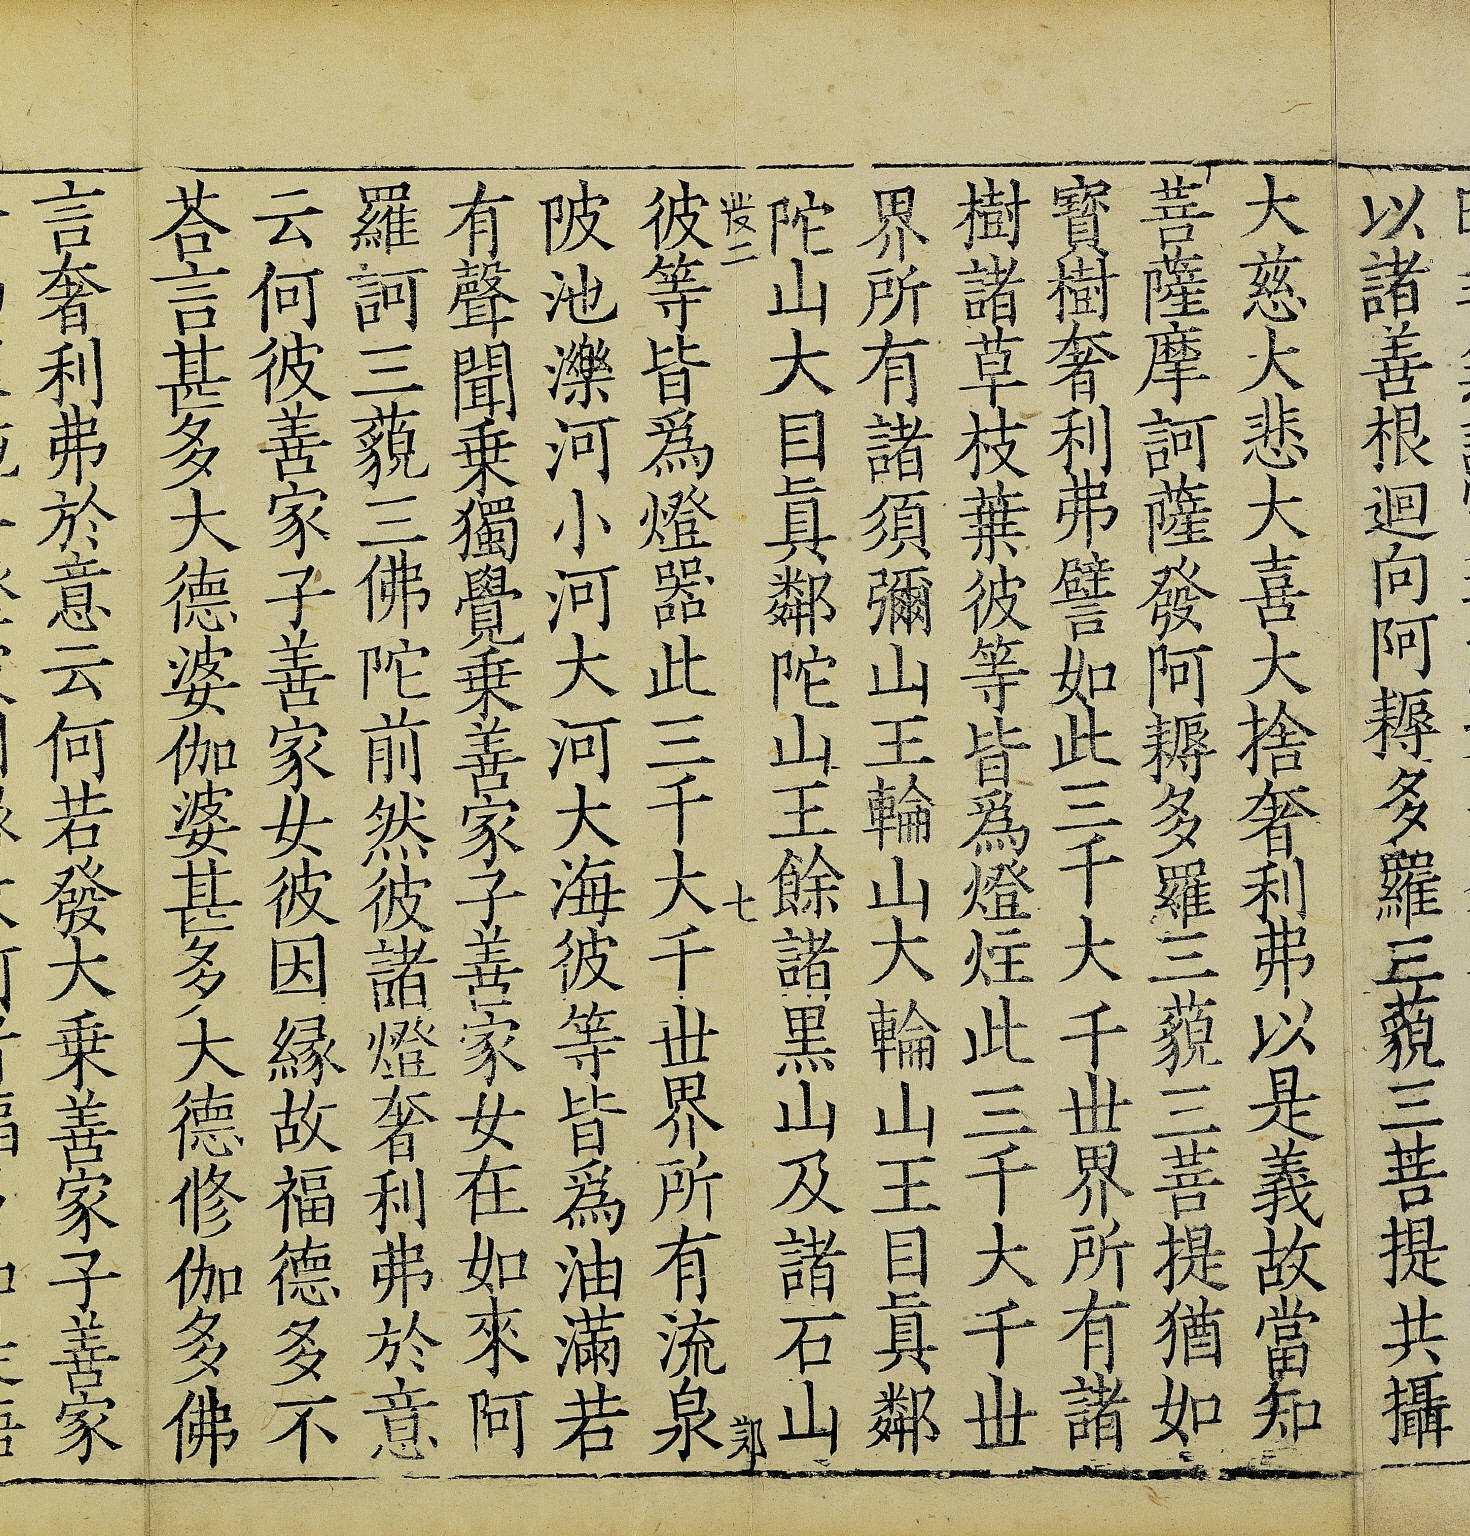 以諸善根迴向阿耨多羅三藐三菩提共攝
大慈大悲大喜大捨奢利弗以是義故當知
菩薩摩訶薩發阿耨多羅三藐三菩提猶如
寳樹奢利弗譬如此三千大千丗界所有諸
樹諸草枝葉彼等皆爲燈炷此三千大千丗
界所有諸須彌山王輪山大輪山王目真鄰
陀山大目真鄰陀山王餘諸黒山及諸石山
七
彼等皆爲燈器此三千大千丗界所有流泉
陂池濼河小河大河大海彼等皆爲油滿若
有聲聞乗獨覺乗善家子善家女在如來阿
羅訶三藐三佛陀前然彼諸燈奢利弗於意
云何彼善家子善家女彼因縁故福德多不
荅言甚多大德婆伽婆甚多大德修伽多佛
言奢利弗於意云何若發大乗善家子善家